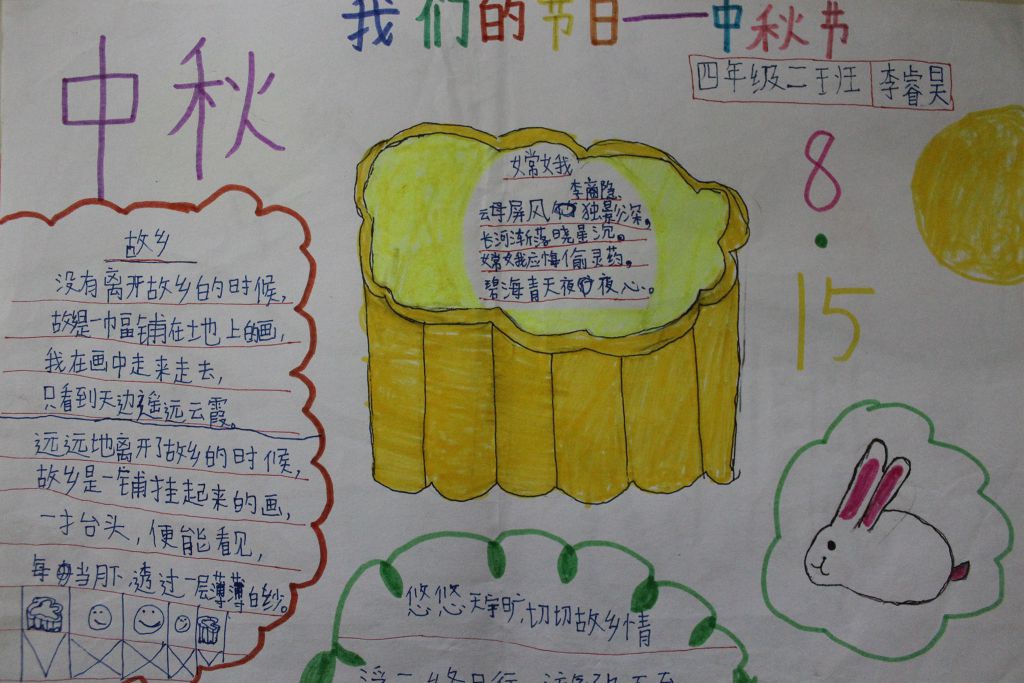 我们的节日——中秋节
四年级二班 李睿昊
中秋
8.15
故乡
没有离开故乡的时候，
故是一幅铺在土地上的画，
我在画中走来走去，
只看到天边遥远云霞。
远远地离开了故乡的时候，
故乡是一铺挂起来的画，
一才台头，便能看见，
每当月下透过一层薄薄白纱。
嫦娥
李商隐
云母屏风独影深，
长河渐落晓星沉。
嫦娥应悔偷灵药，
碧海青天夜夜心。
悠悠天宇旷，切切故乡情